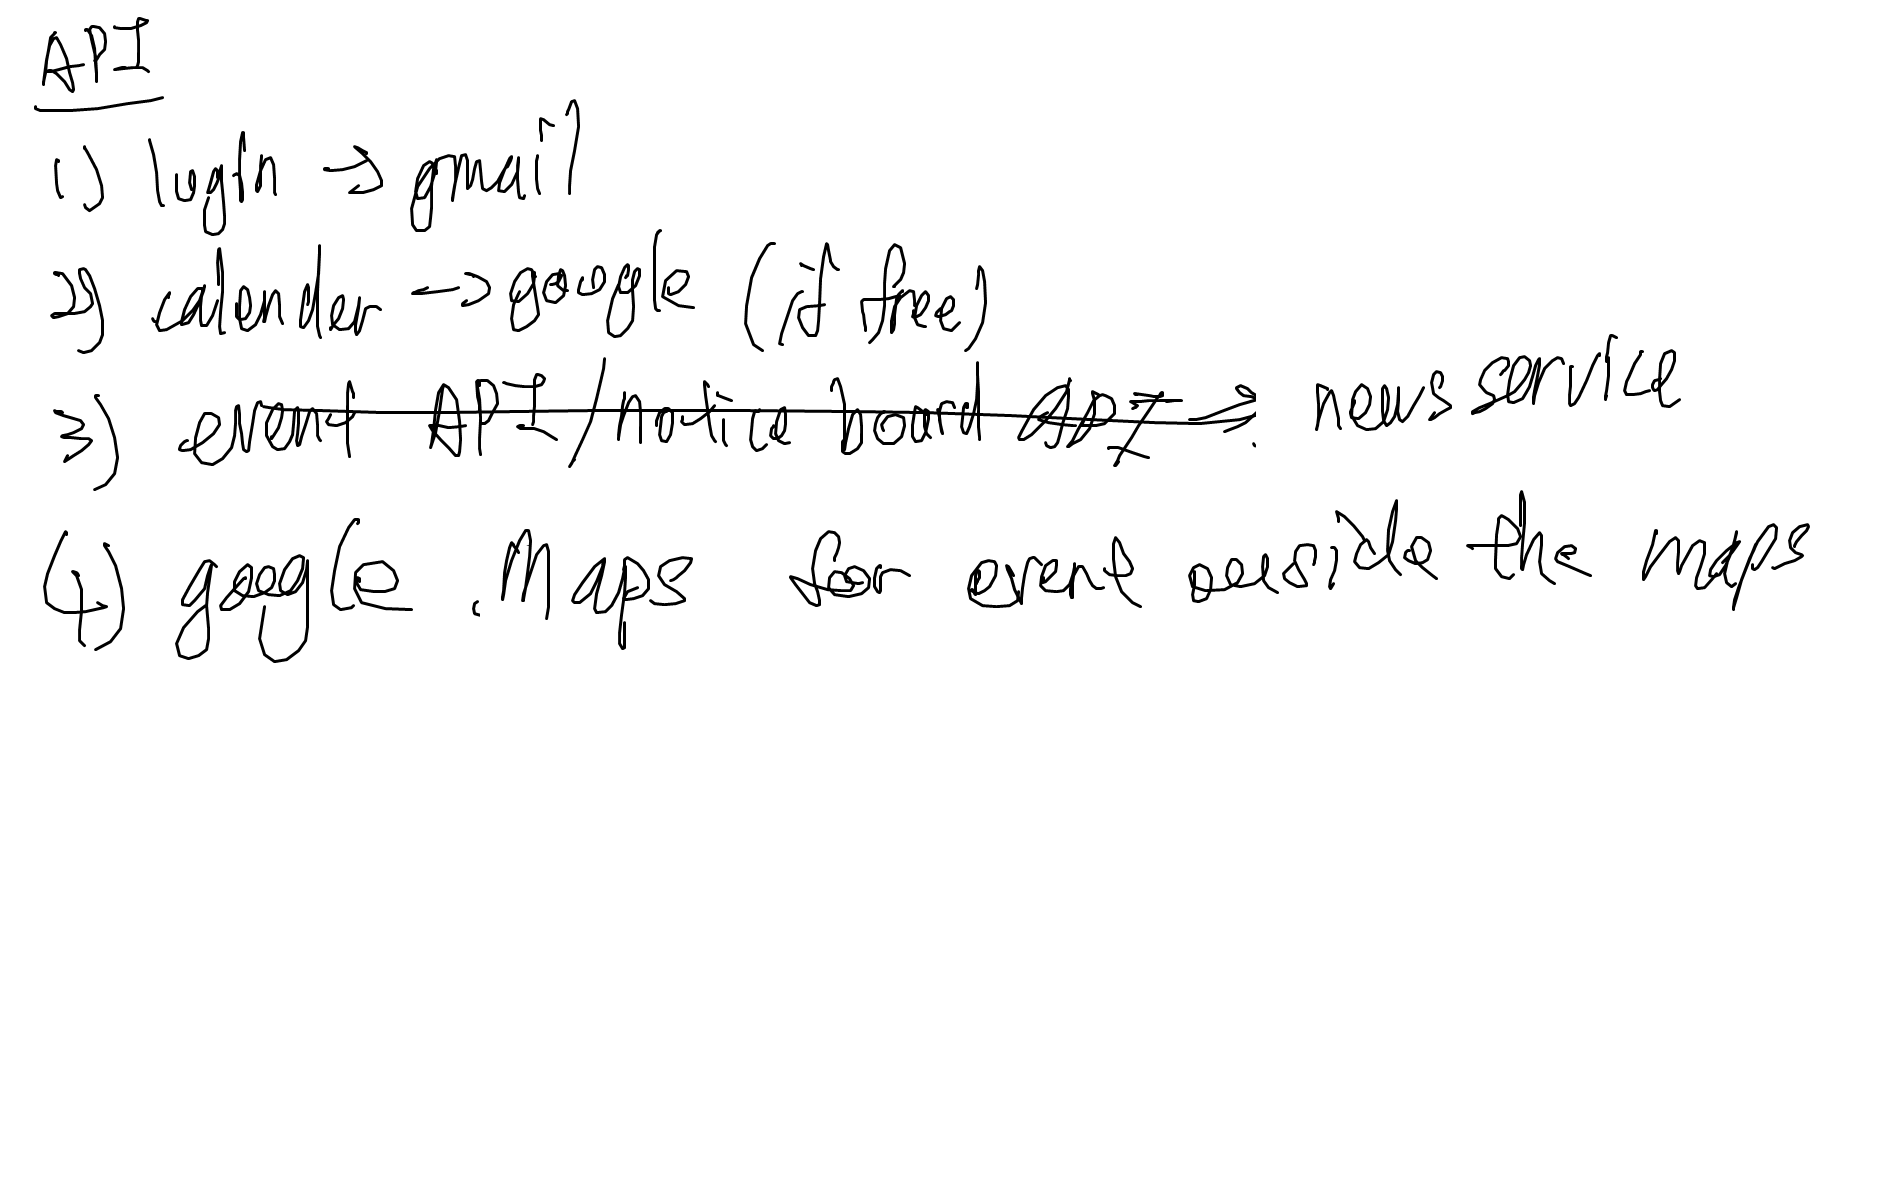 API
1) login → gmail
2) calender → google (if free)
3) event API/notice board API → news service
4) google Maps for event outside the maps